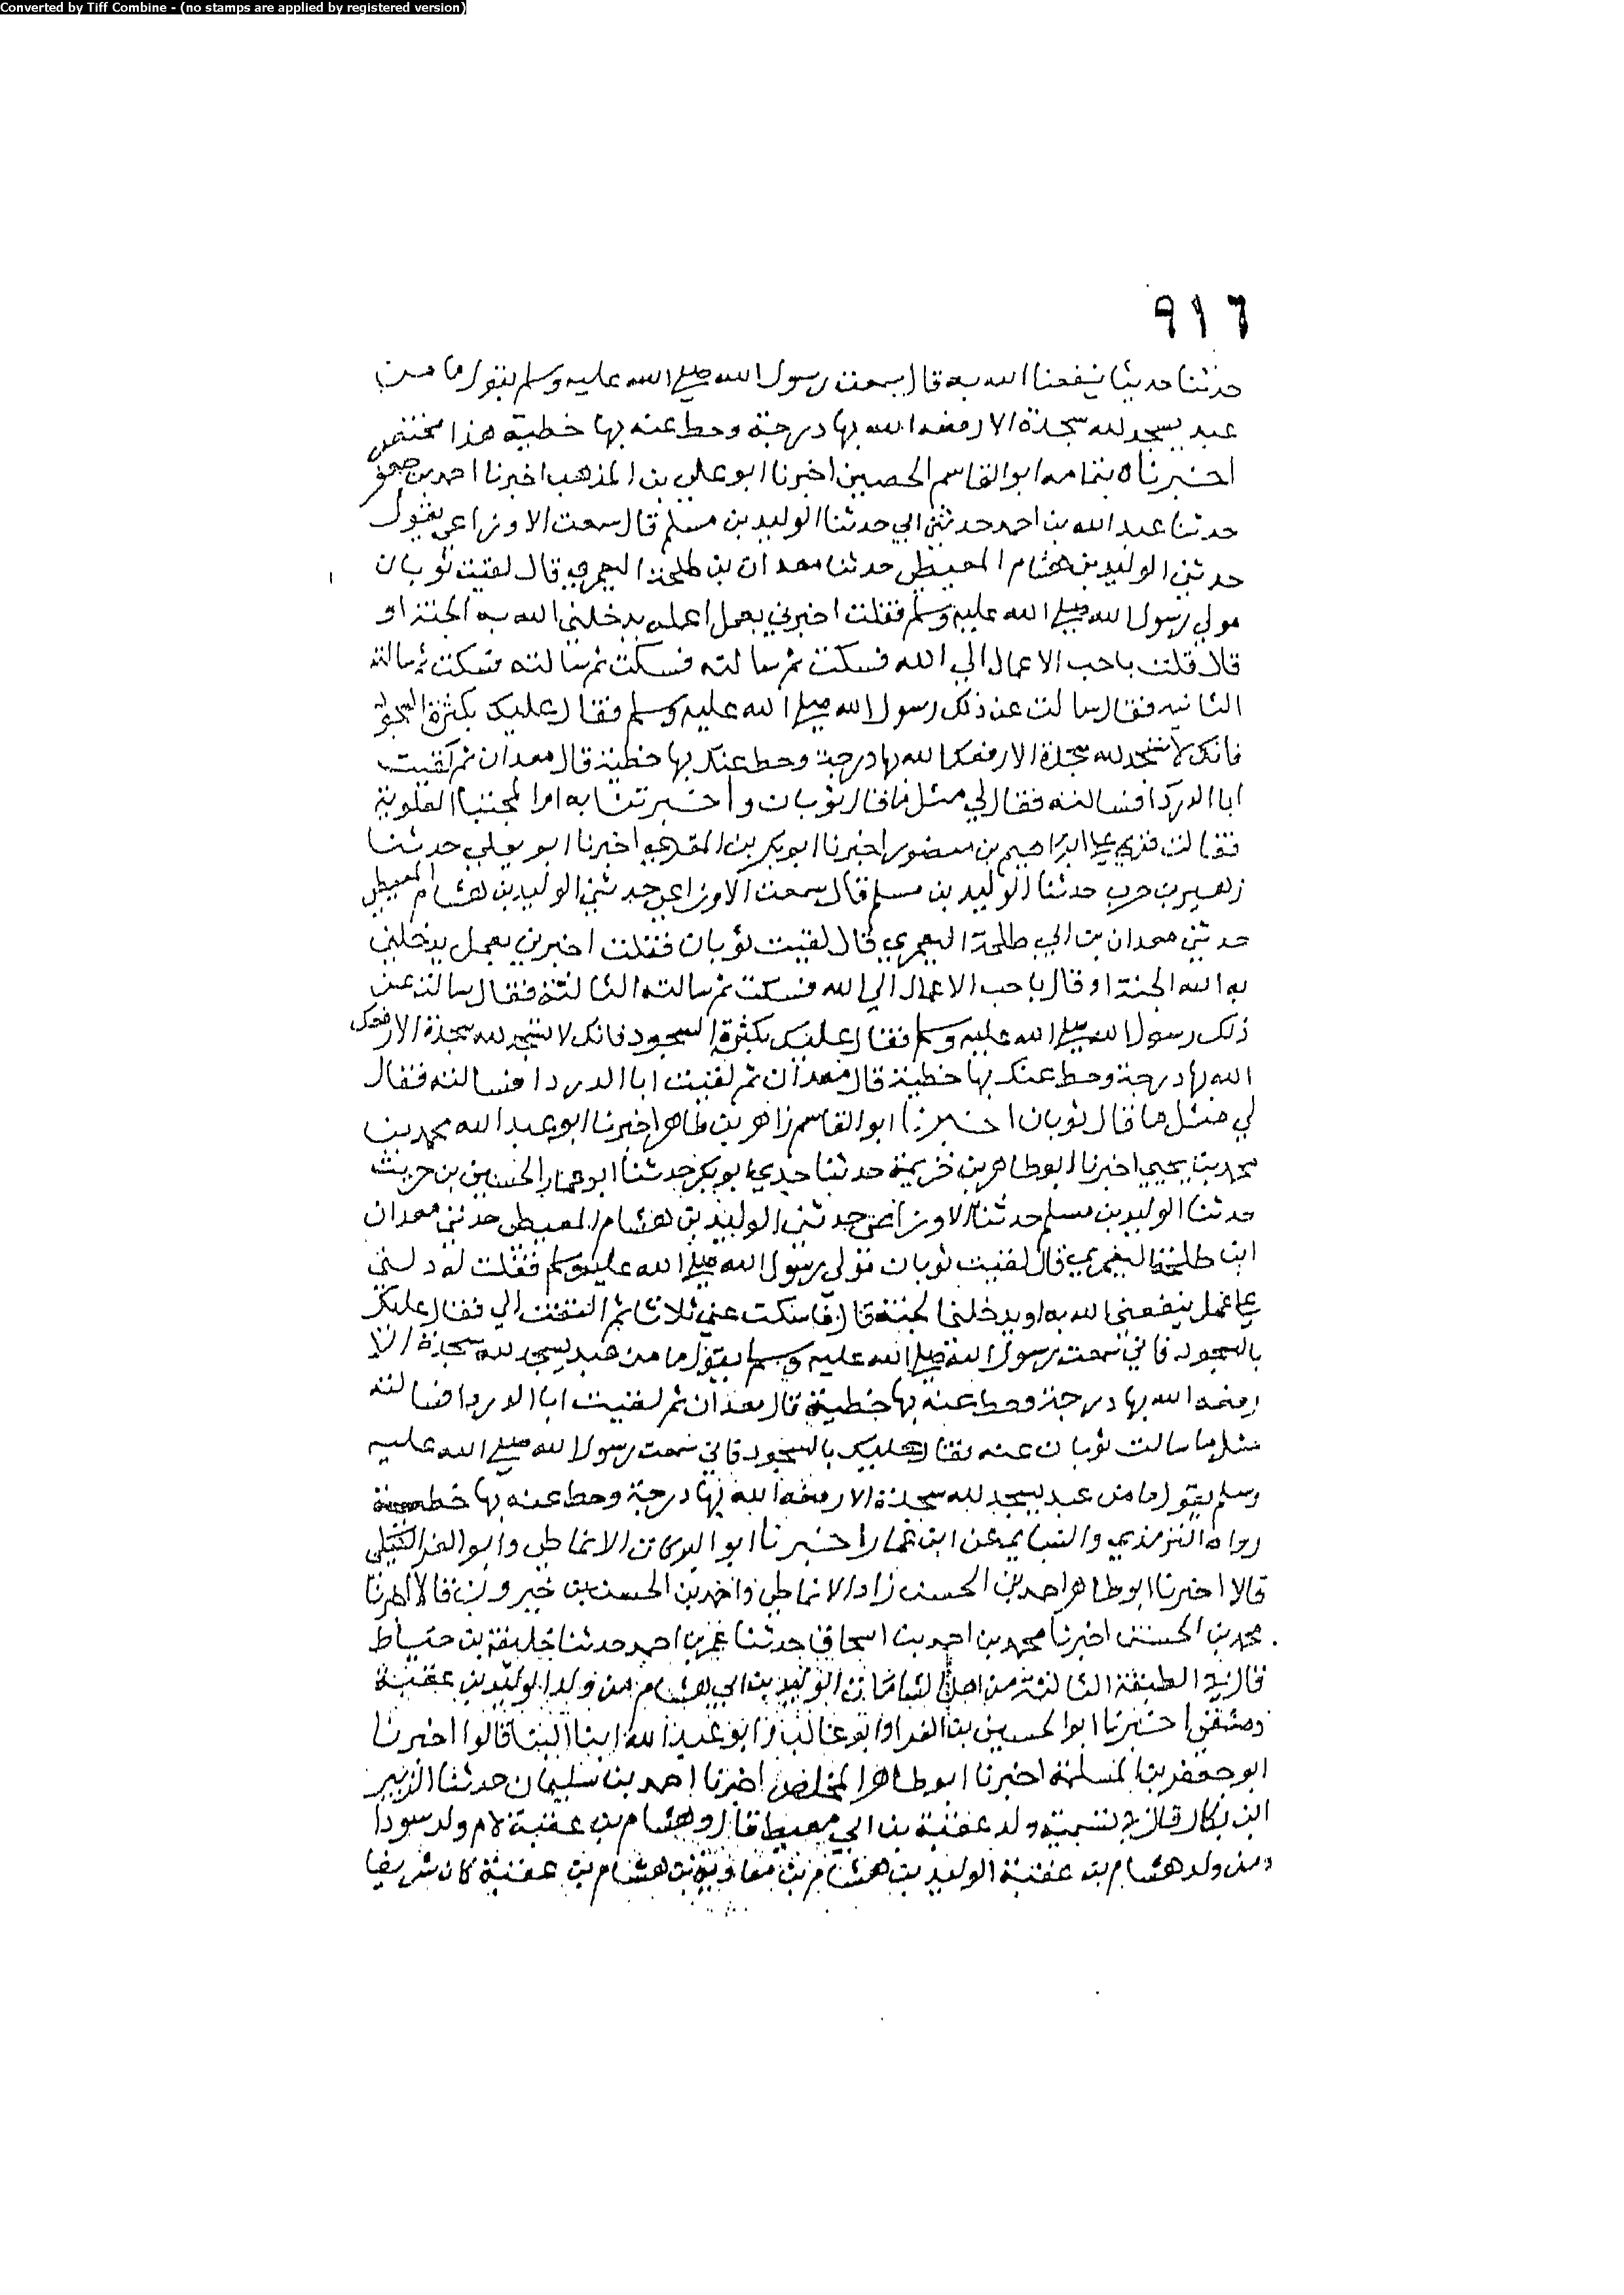 Converted by Tiff Combine - (no stamps are applied by registered version)
٩١٦
حدثنا حديثا ينفعنا الله به قال سمعت رسول الله صلى الله عليه وسلم يقول ما من
عبد يسجد لله سجدة الا رفعه الله بها درجة وحط عنه بها خطية هذا مختصر
اخبرناه بتمامه ابو القاسم الحصين اخبرنا ابو علي بن المذهب اخبرنا احمد بن جعفر
حدثنا عبد الله بن احمد حدثني ابي حدثنا الوليد بن مسلم قال سمعت الاوزاعي يقول
حدثني الوليد بن هشام المعيطي حدثنا معدان بن طلحة اليعمري قال لقيت ثوبان
مولي رسول الله صلى الله عليه وسلم فقلت اخبرني بعمل اعمله يدخلني الله به الجنة او
قال قلت باحب الاعمال الي الله فسكت ثم سالته فسكت ثم سالته فسكت ثم سالته
الثانيه فقال سالت عن ذلك رسول الله صلى الله عليه وسلم فقال عليك بكثرة السجود
فانك لا تسجد لله سجدة الا رفعك الله بها درجة وحط عنك بها خطية قال معدان ثم لقيت
ابا الدردا فسالته فقال لي مثل ما قال ثوبان واخبرتنا به ام المجتبا العلوية
فقالت قري على ابراهيم بن منصور اخبرنا ابو بكر بن المقري اخبرنا ابو يعلي حدثنا
زهير بن حرب حدثنا الوليد بن مسلم قال سمعت الاوزاعي حدثني الوليد بن هشام المعيطي
حدثني معدان بن ابي طلحة اليعمري قال لقيت ثوبان فقلت اخبرني بعمل يدخلني
به الله الجنة او قال باحب الاعمال الي الله فسكت ثم سالته الثالثة فقال سالت عن
ذلك رسول الله صلى الله عليه وسلم فقال عليك بكثرة السجود فانك لا تسجد لله سجدة الا رفعك
الله بها درجة وحط عنك بها خطية قال معدان ثم لقيت ابا الدردا فسالته فقال
لي مثل ما قال ثوبان اخبرنا ابو القاسم زاهر بن طاهر اخبرنا ابو عبد الله محمد بن
محمد بن يحيي اخبرنا ابو طاهر بن خزيمة حدثنا جدي ابو بكر حدثنا ابو عمار الحسين بن حريث
حدثنا الوليد بن مسلم حدثنا الاوزاعي حدثني الوليد بن هشام المعيطي حدثني معدان
ابن طلحة اليعمري قال لقيت ثوبان مولي رسول الله صلى الله عليه وسلم فقلت له دلني
على عمل ينفعني الله به او يدخلني الجنة قال فاسكت عني ثلاثا ثم التفت الي فقال عليك
بالسجود فاني سمعت رسول الله صلى الله عليه وسلم يقول ما من عبد يسجد لله سجدة الا
رفعه الله بها درجة وحط عنه بها خطية قال معدان ثم لقيت ابا الدردا فسالته
مثل ما سالت ثوبان عنه فقال عليك بالسجود فاني سمعت رسول الله صلى الله عليه
وسلم يقول ما من عبد يسجد لله سجدة الا رفعه الله بها درجة وحط عنه بها خطية
رواه الترمذي والنساي عن ابن عمار اخبرنا ابو البركات الانماطي وابو العز الكيلي
قالا اخبرنا ابو طاهر احمد بن الحسن زاد الانماطي واحمد بن الحسن بن خيرون قالا اخبرنا
محمد بن الحسن اخبرنا محمد بن احمد بن اسحاق حدثنا عمر بن احمد حدثنا خليفة بن خياط
قال في الطبقة الثالثة من اهل الشامات الوليد بن ابي هشام من ولد الوليد بن عقبة
دمشقي اخبرنا ابو الحسين بن الفرا وابو غالب وابو عبد الله ابنا البنا قالوا اخبرنا
ابو جعفر بن المسلمة اخبرنا ابو طاهر المخلص اخبرنا احمد بن سليمان حدثنا الزبير
ابن بكار قال في تسمية ولد عقبة بن ابي معيط قال وهشام بن عقبة لام ولد سودا
ومن ولد هشام بن عقبة الوليد بن هشام بن معاوية بن هشام بن عقبة كان شريفا